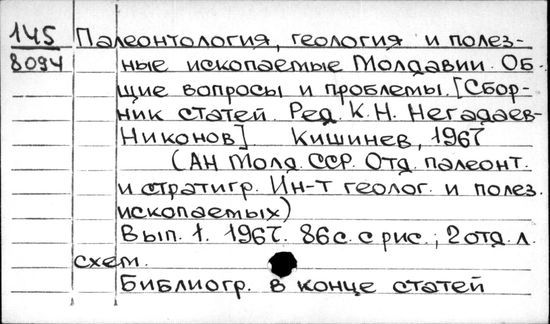 145 Палеонтология, геология и полез-
8094 ные ископаемые Молдавии. Об-
щие вопросы и проблемы. [Сбор-
ник статей. Ред. К. Н. Негадаев-
Никонов] Кишинев, 1967
(АН Молд. ССР. Отд. палеонт.
и стратигр. Ин-т геолог. и полез.
ископаемых)
Вып. 1. 1967. 86 с. с рис.; 2 отд. л.
схем.
Библиогр. в конце статей